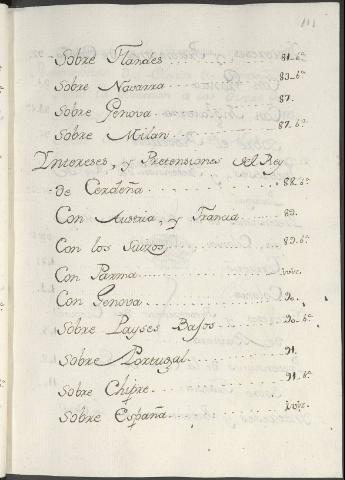 111
Sobre Flandes . . . . . . . . . . 81.bª
Sobre Navarra . . . . . . . . . . 83.bª
Sobre Genova . . . . . . . . . . 87.
Sobre Milan . . . . . . . . . . 87.bª
Yntereses, y Pretensiones del Rey
de Cerdeña . . . . . . . . . . 88.bª
Con Austria, y Francia . . . . . 89.
Con los Suizos . . . . . . . . . . 89.bª
Con Parma . . . . . . . . . .
Con Genova . . . . . . . . . . 90.
Sobre Payses Bajos . . . . . . . 90.bª
Sobre Portugal . . . . . . . . . . 91.
Sobre Chipre . . . . . . . . . . 91.bª
Sobre España . . . . . . . . . .